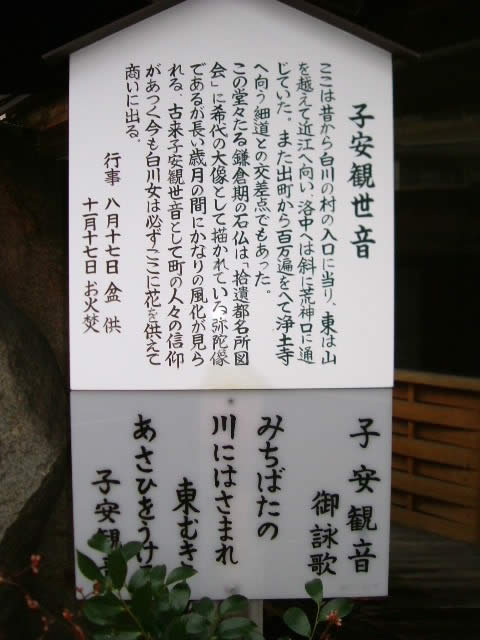 子安観世音
ここは昔から白川の村の入口に当り、東は山
を越えて近江へ向い、洛中へは斜に荒神口に通
じていた。また出町から百万遍をへて浄土寺
へ向う細道との交差点でもあった。
この堂々たる鎌倉期の石仏は「拾遺都名所図
会」に希代の大像として描かれている弥陀像
であるが長い歳月の間にかなりの風化が見ら
れる、古来子安観世音として町の人々の信仰
があつく今も白川女は必ずここに花を供えて
商いに出る。
行事 八月十七日 盆供
十一月十七日 お火焚
子安観音
御詠歌
みちばたの
川にはさまれ
東むき
あさひをうける
子安観